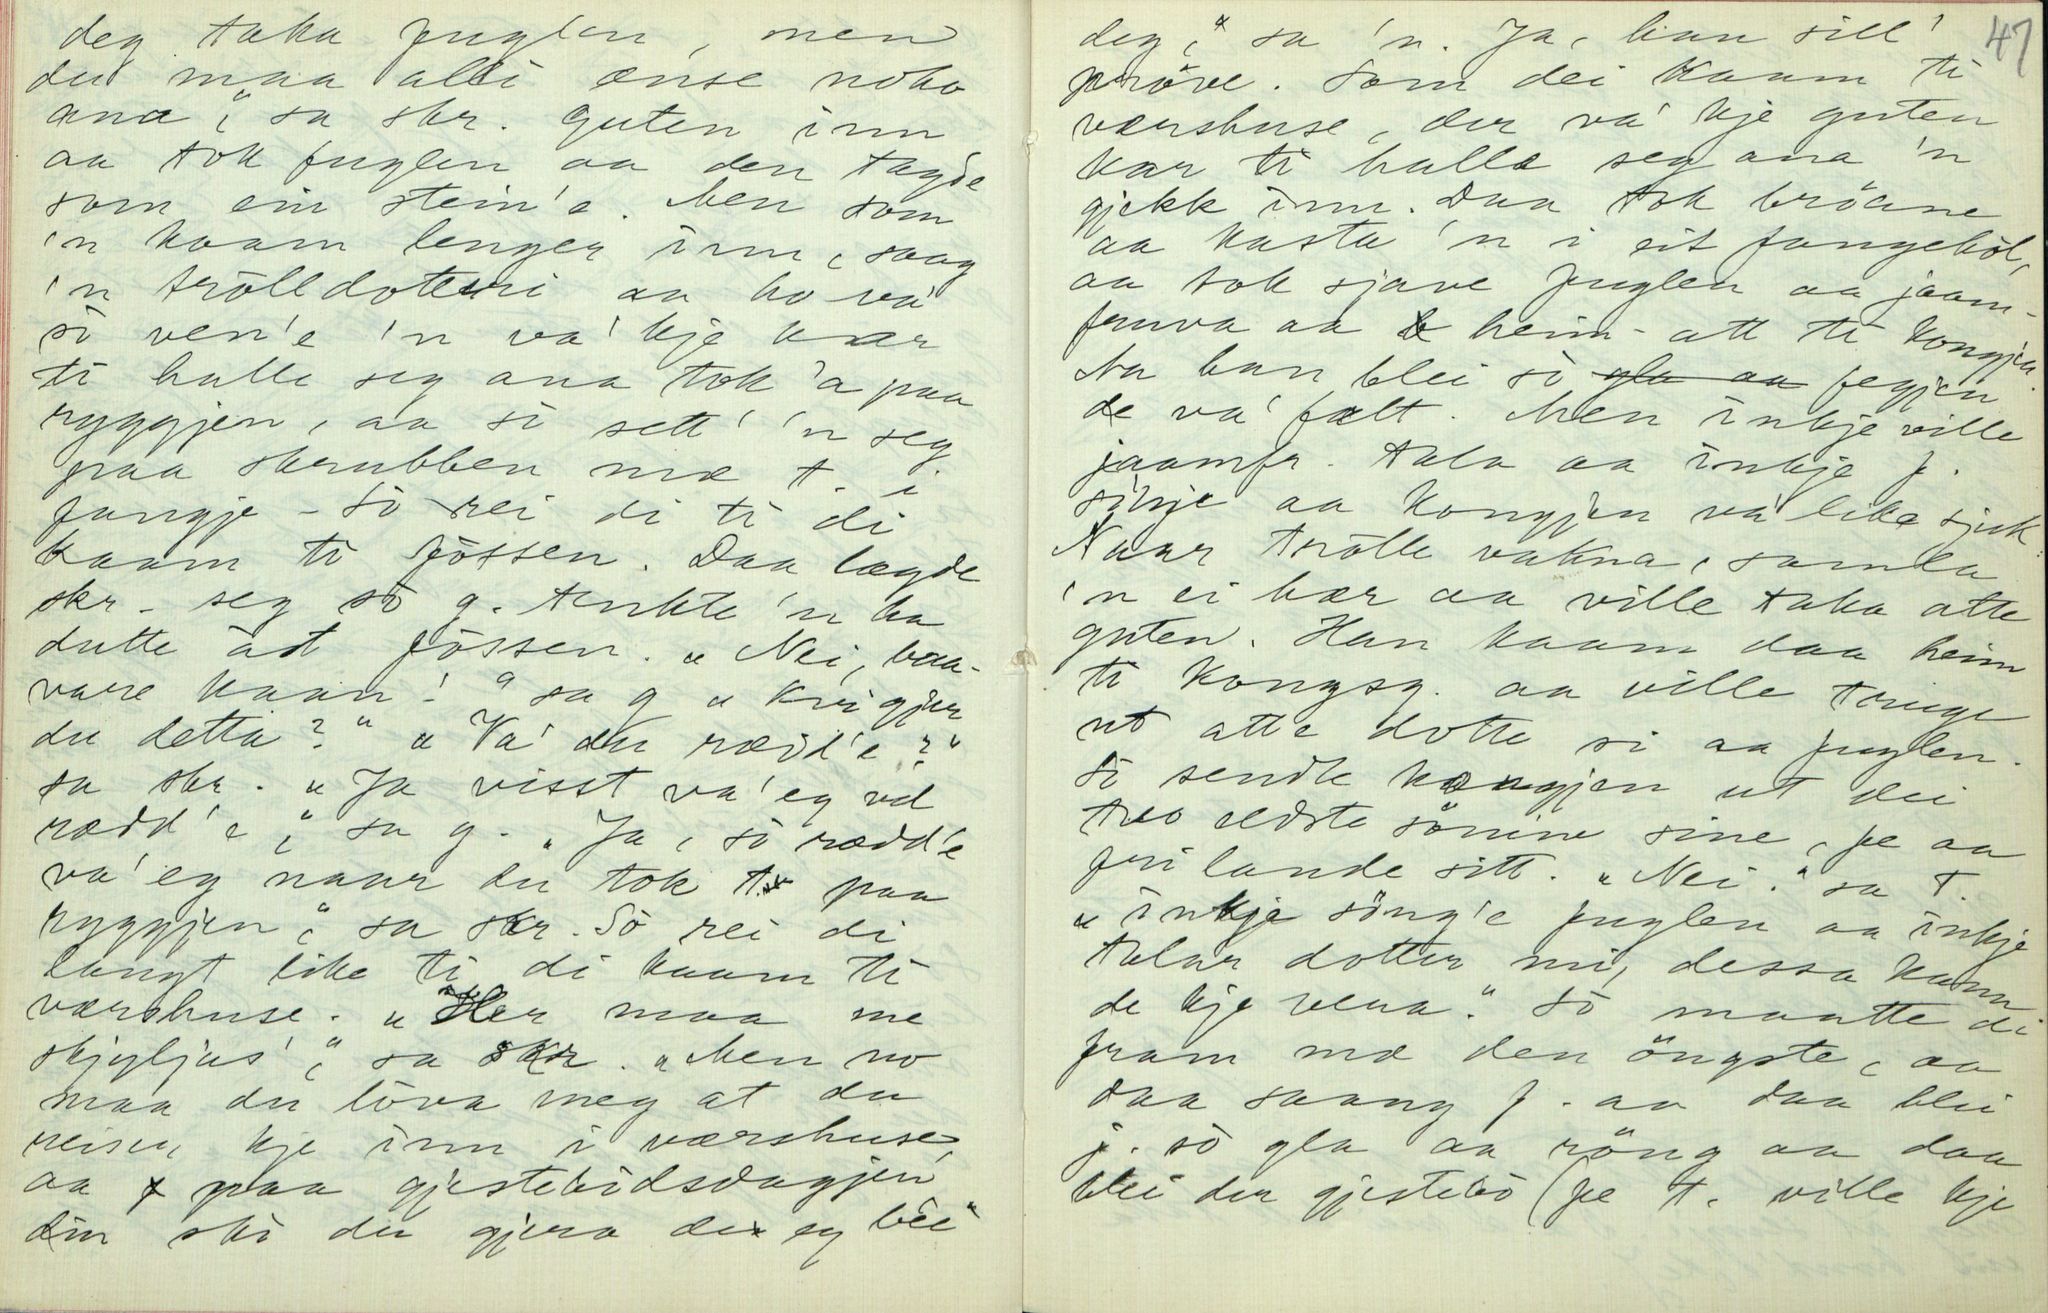 deg taka fuglen, men
du maa alli ænse noko
ana," sa skr. Guten inn
aa tok fuglen aa den tagde
som ein stein'e. Men som
'n kaam lenger inn, saag
'n trölldotteri aa ho va'
så ven'e 'n va' kje kar
ti halle seg ana tok 'a paa
ryggjen, aa så sett' 'n seg
paa skrubben mæ t. i
fangje - så rei di ti di
kaam ti fössen. Daa lægde
skr. seg så g. tenkte 'n ha
dutte åt fössen. „Nei, baa-
vare kaan!" sa g „Kvi gjer
du detta?" „Va' du rædd'e?"
sa skr. „Ja visst va' eg væl
rædd'e," sa g. „Ja, så rædd'e
va' eg naar du tok t. paa
ryggjen," sa skr. Så rei di
langt like ti di kaam ti
værshuse. „Her maa me
skjyljas'," sa skr. „Men no
maa du lova meg at du
reiser kje inn i værshuse,
aa paa gjestebodsdagjen
din ska du gjera de eg bee
47
deg," sa 'n. Ja, han sill'
pröve. Som dei kaam ti
værshuse, der va' kje guten
kar ti halle seg ana 'n
gjekk inn. Daa tok bröane
aa kasta 'n i eit fangehöl,
aa tok sjave fuglen aa jaam-
fruva aa heim-att ti kongjen.
Na han blei så gla aa fegjen
de va' fælt. Men inkje ville
jaamfr. tala aa inkje f.
sånge aa kongjen va' lika sjuk.
Naar trölle vakna, samla
'n ei hær aa ville taka atte
guten. Han kaam daa heim
ti kongsg. aa ville tvinge
ut att'e dotte si aa fuglen.
Så sendte kongjen ut dei
tvo eldste sönine sine, fe aa
fri lande sitt. „Nei." sa t.
„inkje söng'e fuglen aa inkje
talar dotter mi, dessa kann
de kje vera." Så maatte di
fram mæ den öngste, aa
daa saang f. aa daa blei
j. så gla aa röng aa daa
blei der gjestebö (fe t. ville kje